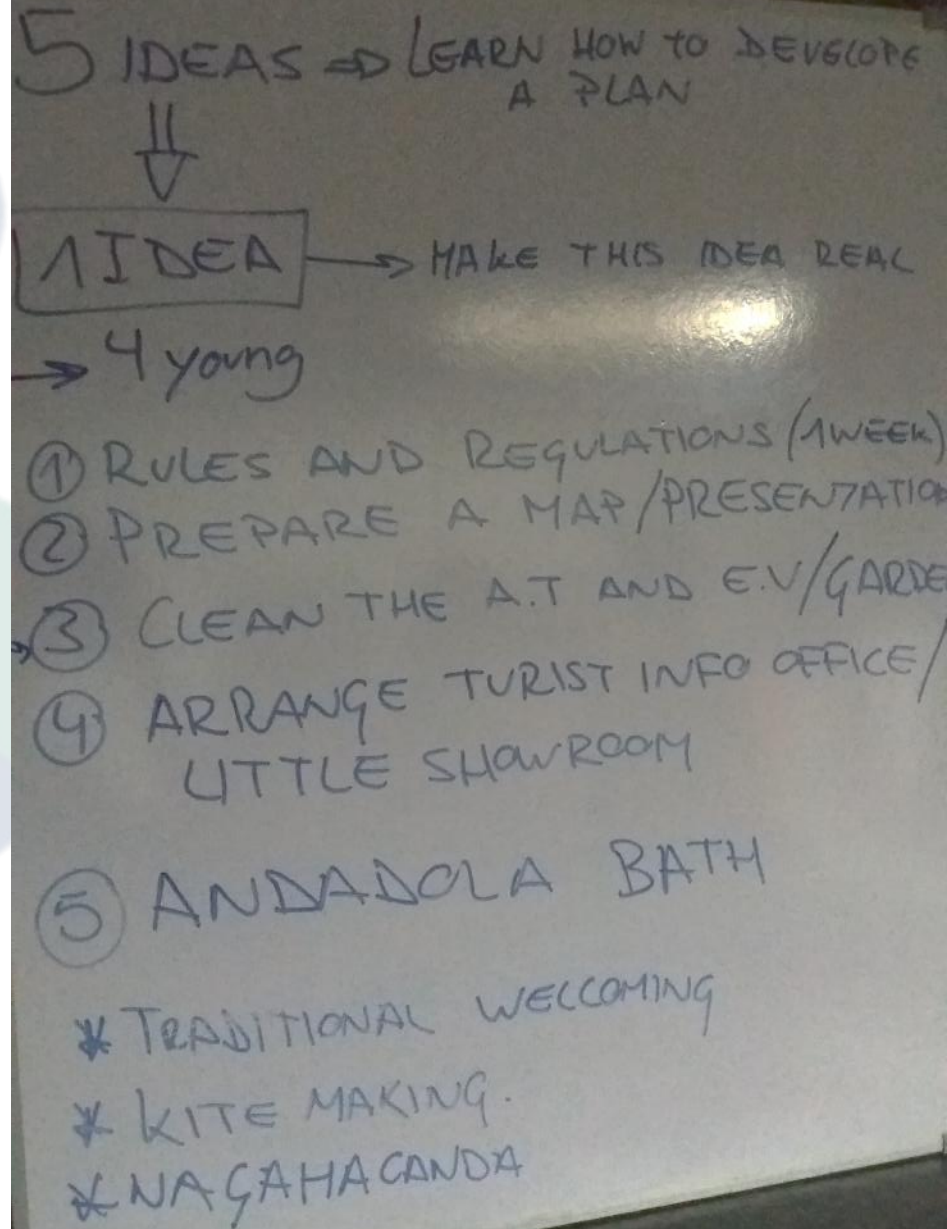 5 IDEAS ⇒ LEARN HOW TO DEVELOPE
A PLAN
⇓
1 IDEA → MAKE THIS IDEA REAL
→ 4 young
① RULES AND REGULATIONS (1 WEEK)
② PREPARE A MAP/PRESENTATION
→ ③ CLEAN THE A.T AND E.V/GARDE
④ ARRANGE TURIST INFO OFFICE/
LITTLE SHOWROOM
⑤ ANDADOLA BATH
* TRADITIONAL WELCOMING
* KITE MAKING.
* NAGAHACANDA